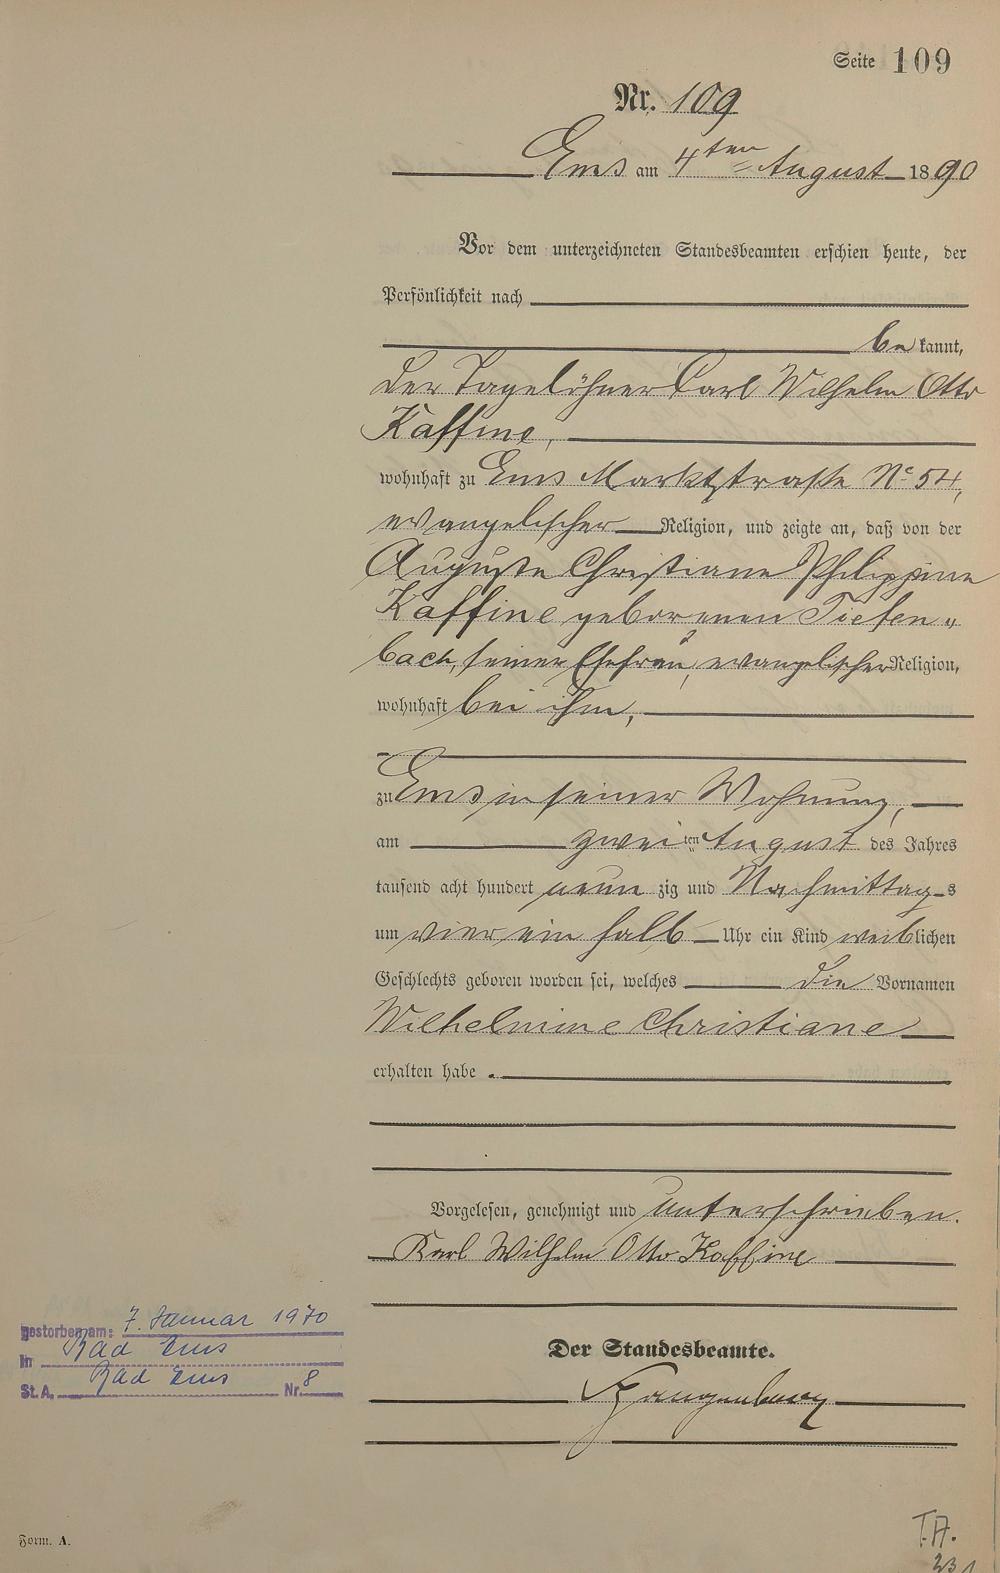 Seite 109
Nr. 109
Ems am 4ten August 1890
Vor dem unterzeichneten Standesbeamten erschien heute, der
Persönlichkeit nach
bekannt,
der Tagelöhner Carl Wilhelm Otto
Kaffine,
wohnhaft zu Ems Marktstraße No 54,
evangelischer Religion, und zeigte an, daß von der
Auguste Christiane Philippine
Kaffine geborenen Tiefen„
bach, seiner Ehefrau, evangelischer Religion,
wohnhaft bei ihm,
zu Ems in seiner Wohnung,
am zweiten August des Jahres
tausend acht hundert neunzig und Nachmittags
um vier ein halb Uhr ein Kind weiblichen
Geschlechts geboren worden sei, welches die Vornamen
Wilhelmine Christiane
erhalten habe.
Vorgelesen, genehmigt und unterschrieben.
Karl Wilhelm Otto Kaffine
gestorben am: 7. Januar 1970
in Bad Ems
St.A. Bad Ems Nr. 8
Der Standesbeamte.
Form. A.
T.A.